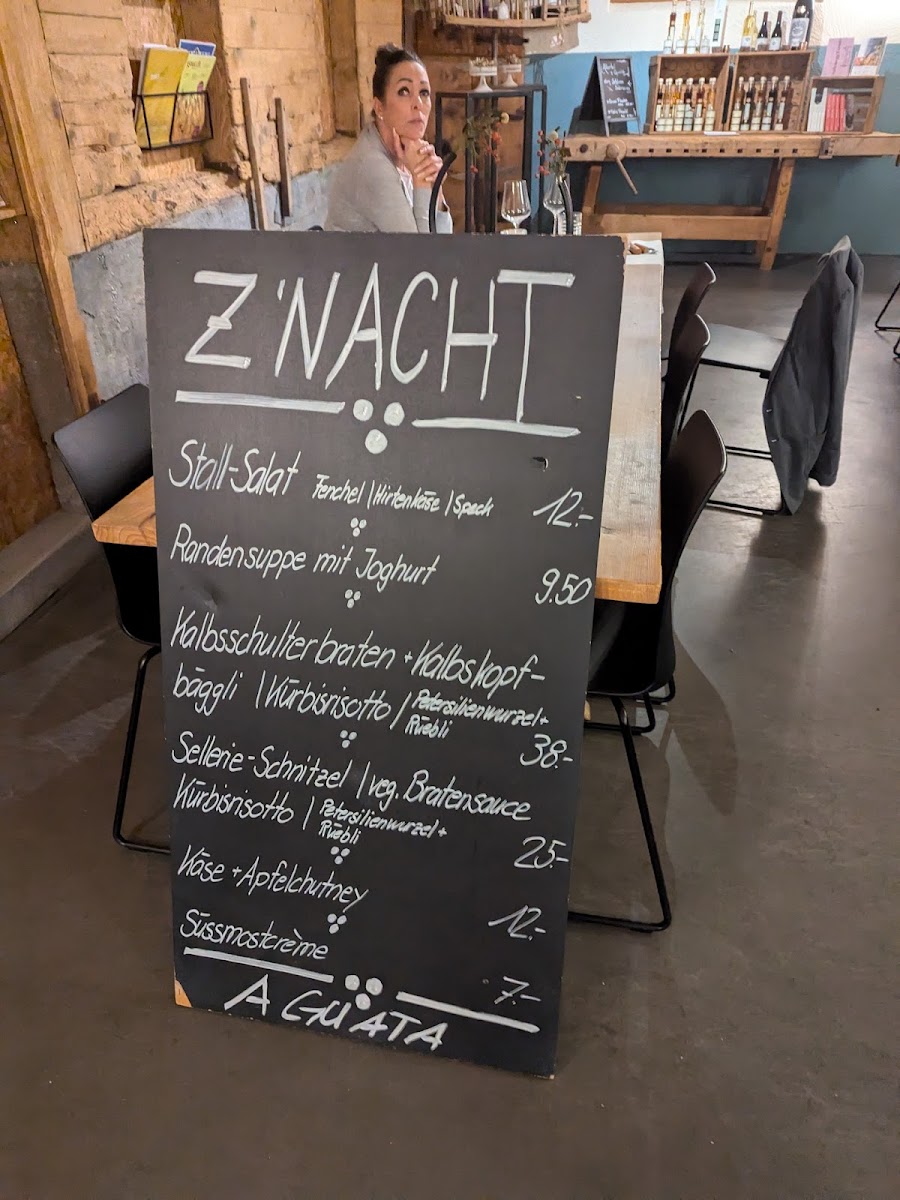 Z'NACHT
Stall-Salat Fenchel | Hirtenkäse | Speck 12.-
Randensuppe mit Joghurt 9.50
Kalbsschulterbraten + Kalbskopf-
bäggli | Kürbisrisotto | Petersilienwurzel +
Rüebli
38.-
Sellerie-Schnitzel | veg. Bratensauce
Kürbisrisotto | Petersilienwurzel +
Rüebli
25.-
Käse + Apfelchutney 12.-
Süssmostcrème 7.-
A GUATA